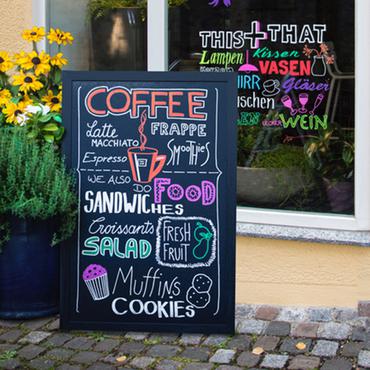 COFFEE
Latte FRAPPE
MACCHIATO
Espresso SMOOTHIES
WE ALSO DO FOOD
SANDWICHES
Croissants FRESH
SALAD FRUIT
Muffins
COOKIES
THIS + THAT
Lampen Kissen
VASEN
Gläser
WEIN